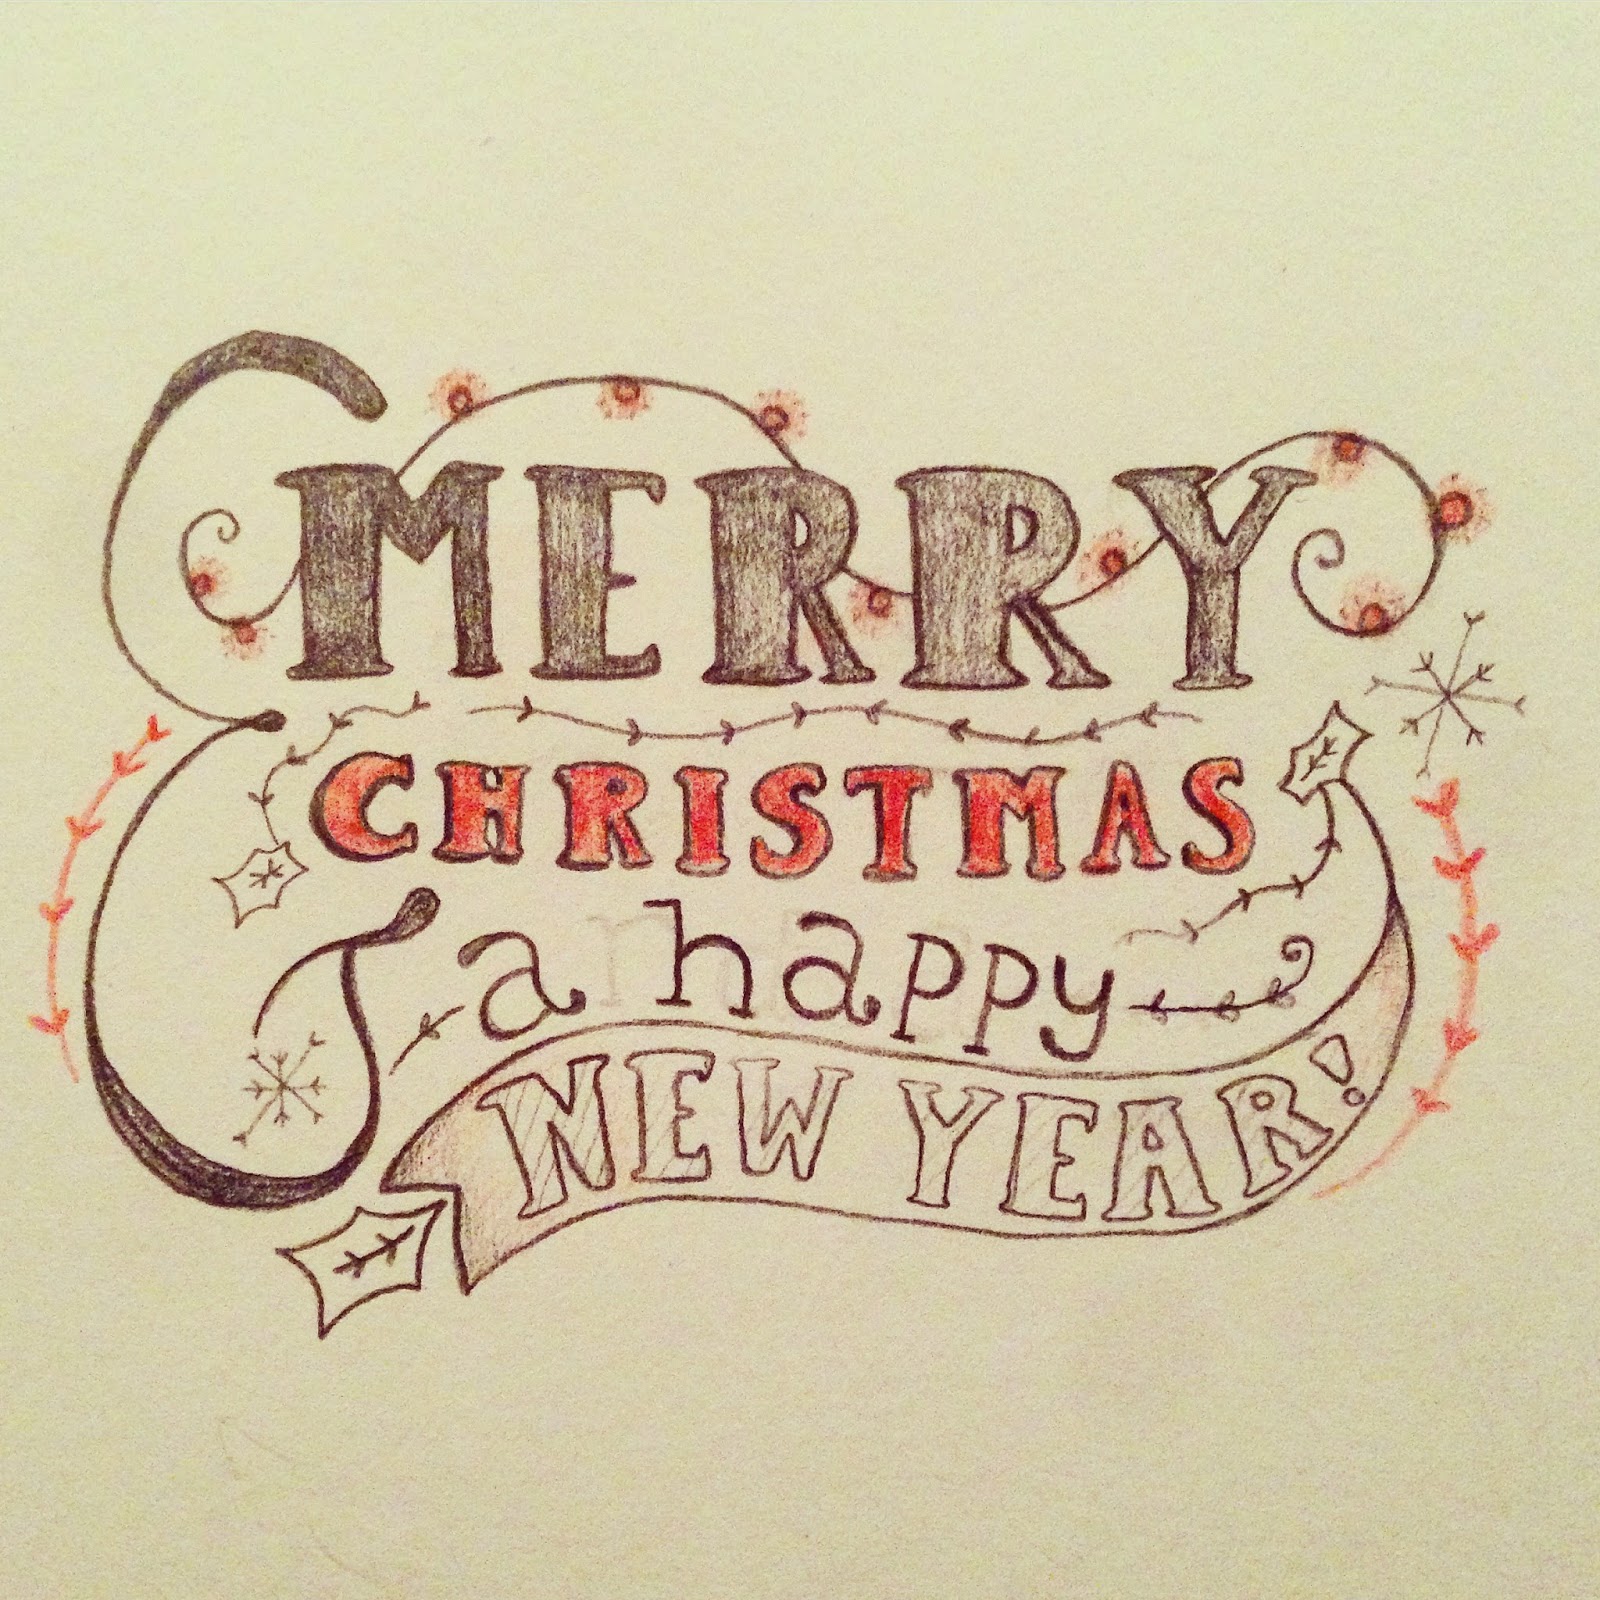 MERRY
CHRISTMAS
& a happy
NEW YEAR!